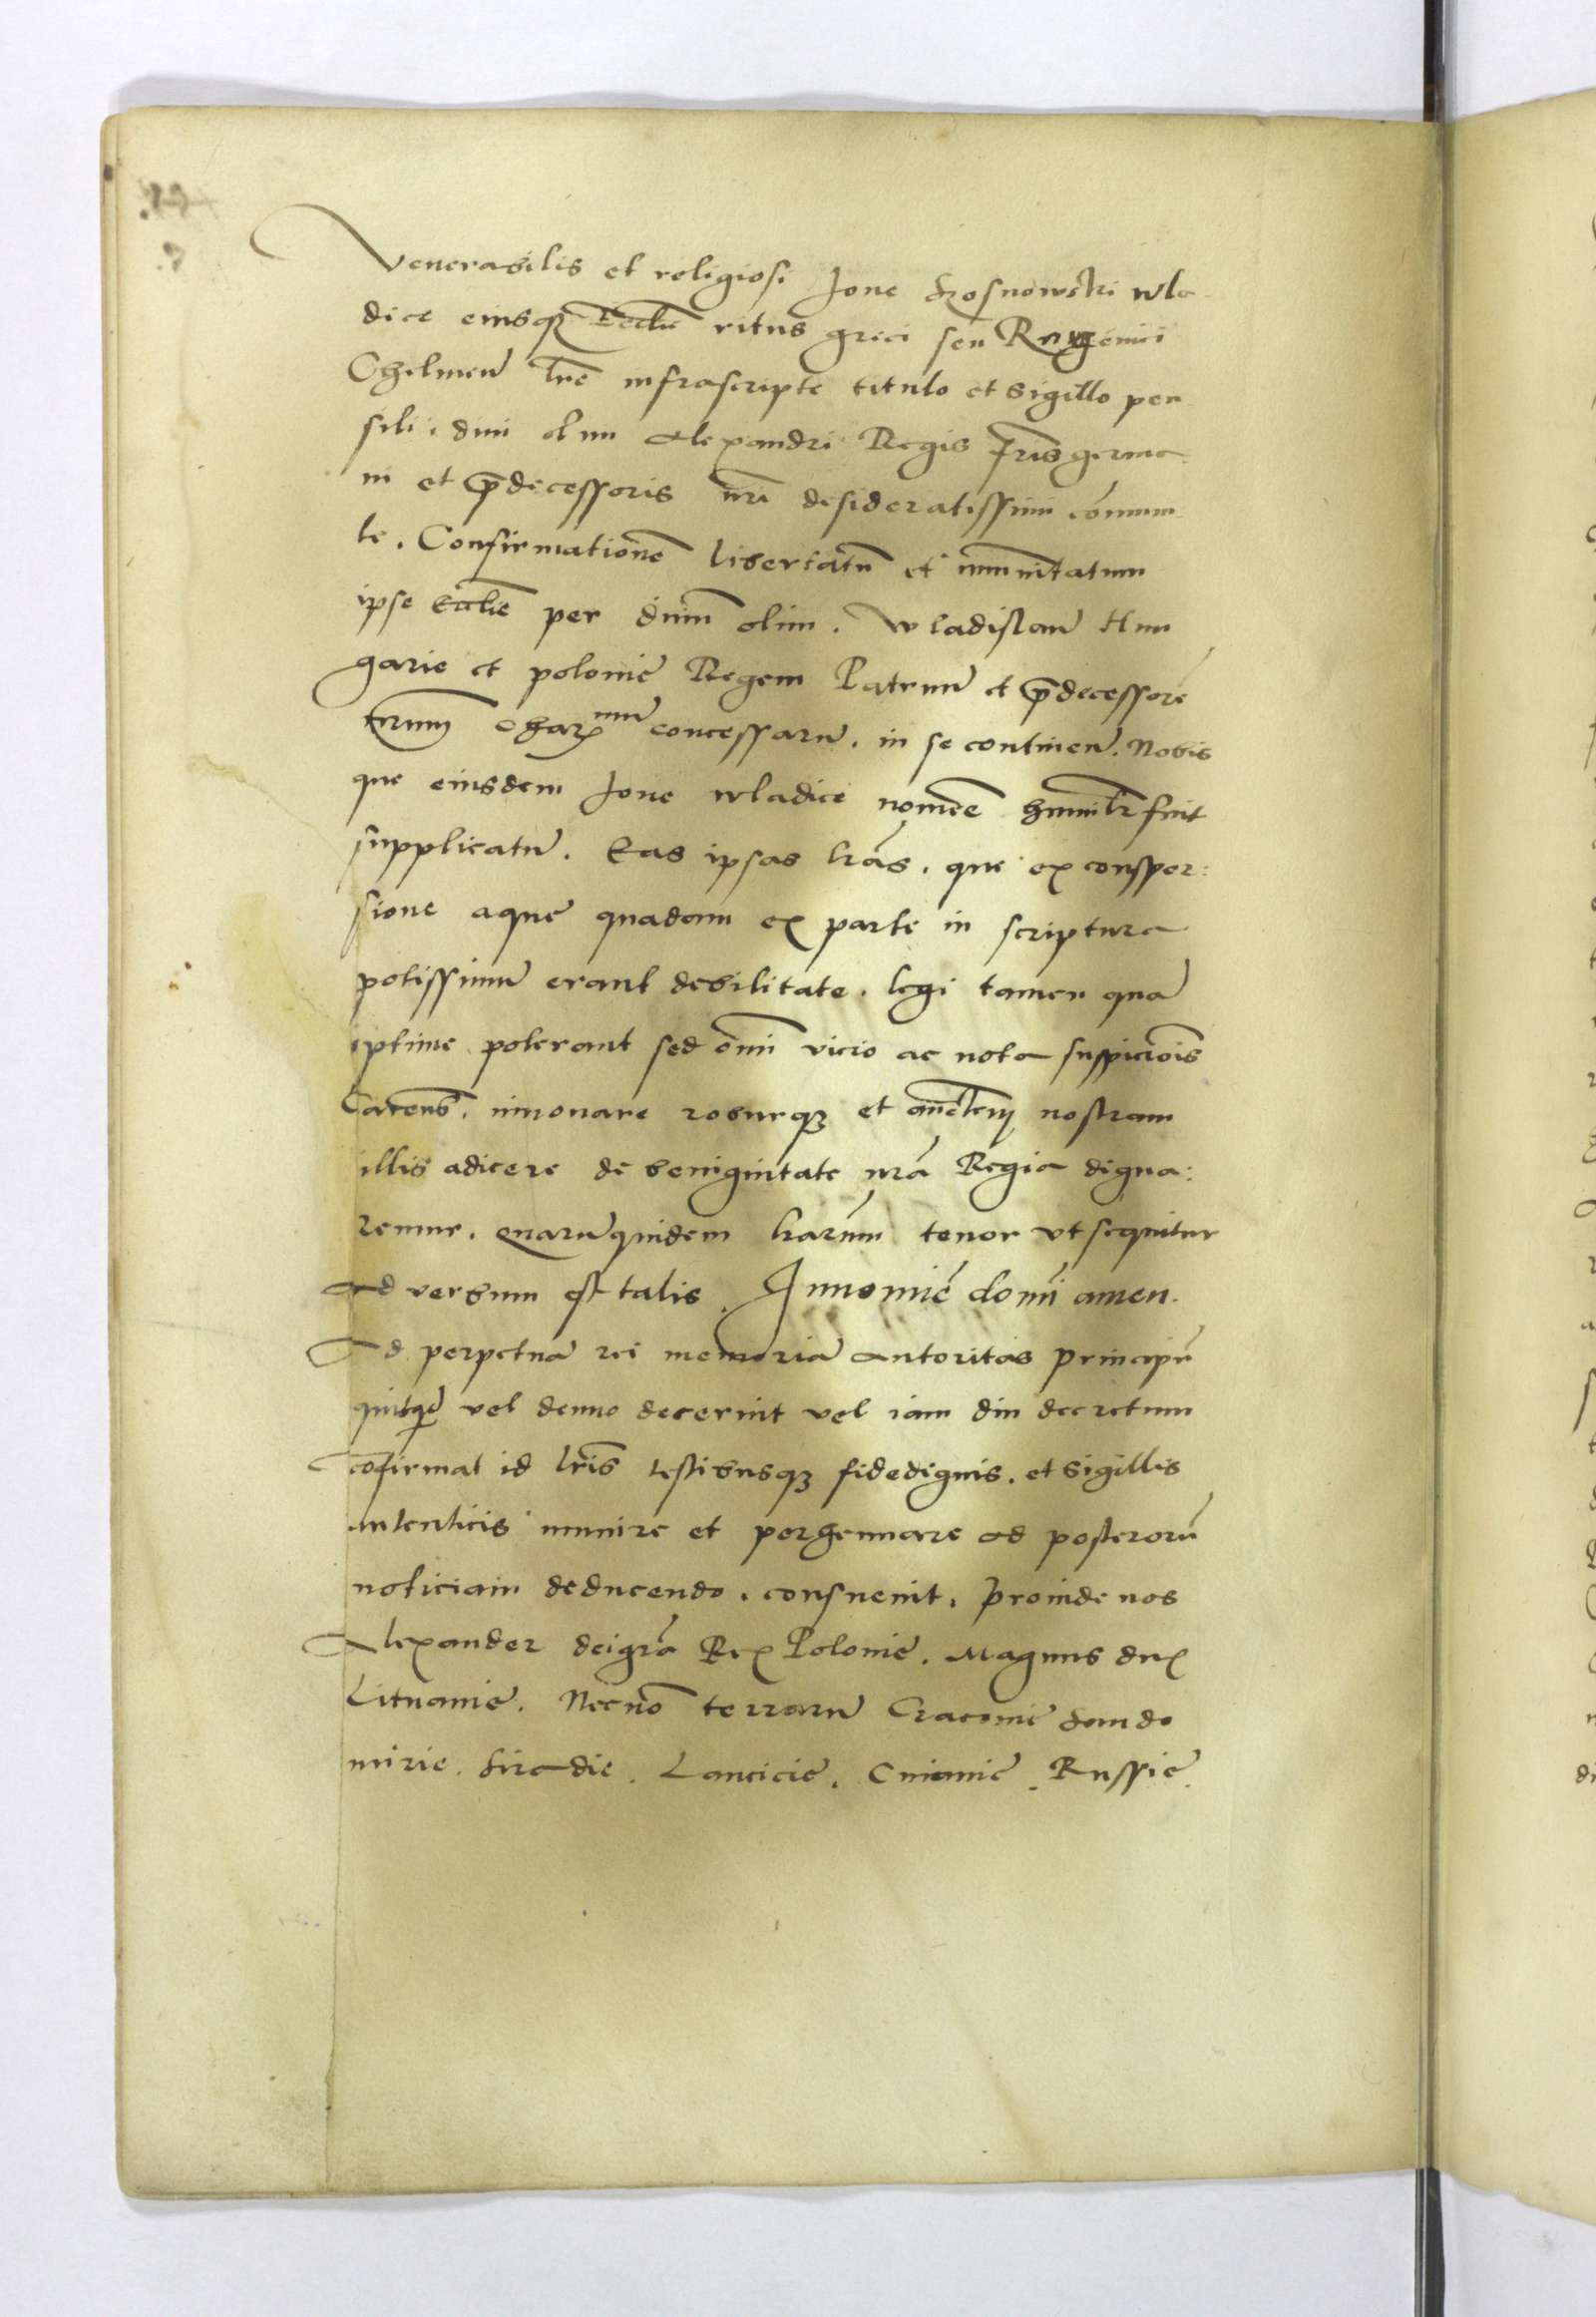 Venerabilis et religiosi Jone Sosnowski wla
dice eiusqȝ Eccłie ritus greci seu Rutenici
Chelmeñ lr̃e infrascripte titulo et sigillo pen
sili diui olim Alexandri Regis fr̃is germa
ni et p̃decessoris nr̃i desideratissimi com̃uni
te. Confirmationẽ libertatũ et immunitatum
ipse Eccłie per diuũ olim. Wladislaũ Hun
garie et polonie Regem Patruũ et p̃decessorẽ
nr̃um charmũ concessarũ. in se contineñ. Nobis
que eiusdem Jone wladice nomĩe humilr̃ fuit
supplicatũ. Eas ipsas lr̃as. que ex consper:
sione aque quadam ex parte in scriptura
potissimũ erant debilitate. legi tamen quã
optime poterant sed om̃i vicio ac nota suspic̃ois
Careñs. innouare roburqȝ et auctem nostram
illis adicere de benignitate nr̃a Regia digna:
remur. quarũ quidem lr̃arum tenor vt sequitur
ad verbum est talis. In nomĩe domĩ amen.
Ad perpetuã rei memoriã autoritas principũ
quitqȝ vel denuo decernit vel iam diu decretum
cõfirmat id lr̃is testibusqȝ fidedignis. et sigillis
autenticis munire et perhennare ad posterorũ
noticiam deducendo. consueuit. Proinde nos
Alexander dei gr̃a Rex Polonie. Magnus dux
Lituanie. Necnõ terrarũ Cracouie Sando
mirie. Siradie. Lancicie. Cuiauie. Russie.